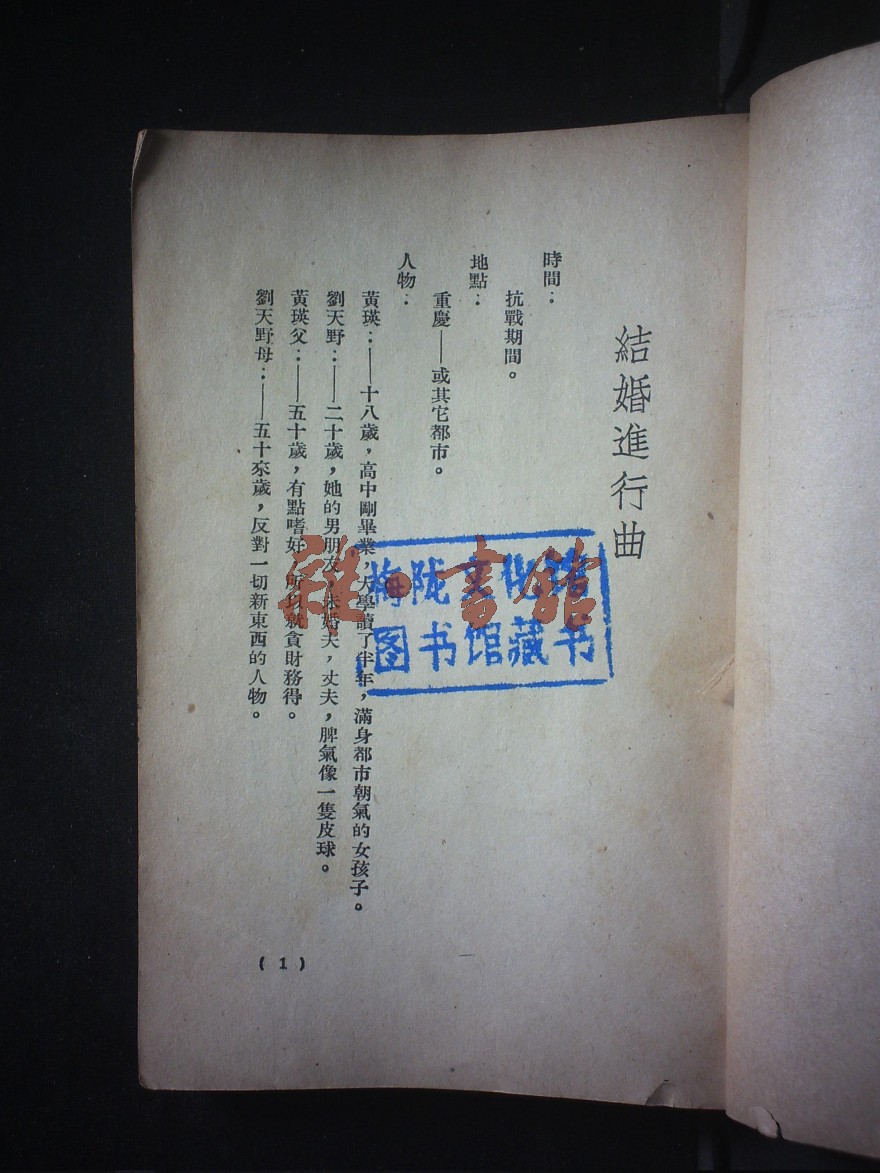 結婚進行曲
時間：
抗戰期間。
地點：
重慶——或其它都市。
人物：
黃瑛：——十八歲，高中剛畢業，大學讀了半年，滿身都市朝氣的女孩子。
劉天野：——二十歲，她的男朋友，未婚夫，丈夫，脾氣像一隻皮球。
黃瑛父：——五十歲，有點嗜好，所以就貪財務得。
劉天野母：——五十來歲，反對一切新東西的人物。
(1)
梅陇文化館
图书馆藏书
雜·書館